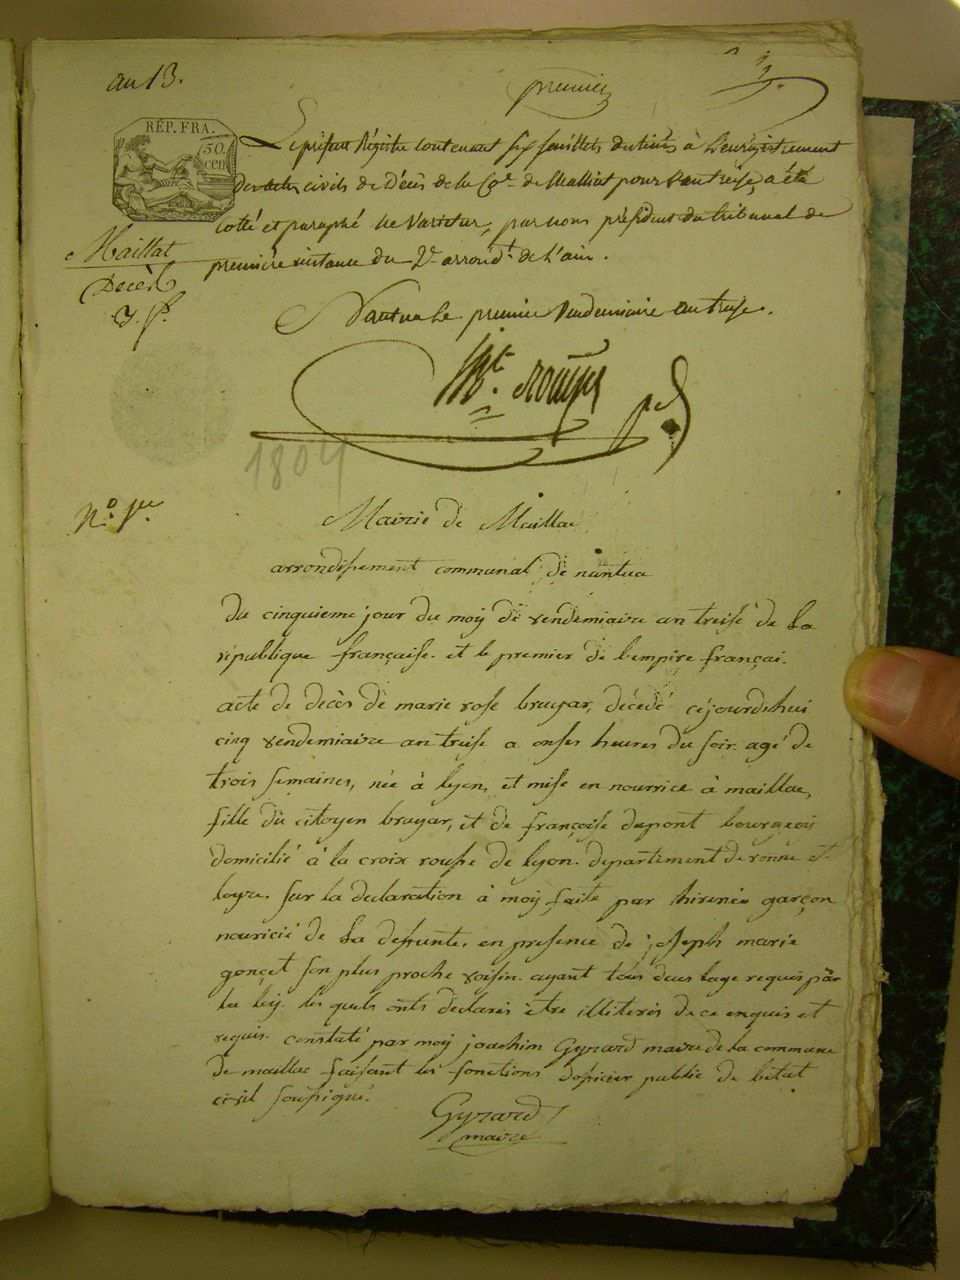 au 13.
premier
RÉP. FRA.
50 cen
Le présent Régistre contenant six feuillets destinés à L'enregistrement
Des actes civils de Décès de la Co.e de Maillat pour L'an treise, a été
cotté et paraphé ne Varietur, par nous président du tribunal de
première instance du 2.e arrond.t de L'ain.
Maillat
Décès
Nantua Le premier Vendemiaire an treise.
1804
N.o 1.er
Mairie de Maillac
arrondissement communal de nantua
du cinquieme jour du moy de vendemiaire an treise de La
république française. et le premier de l'empire françai.
acte de decès de marie rose bruyar, décédé cejourdehui
cinq vendemiaire an treise a onses heures du soir. agé de
trois semaines, née à lyon, et mise en nourrice à maillac,
fille du citoyen bruyar, et de françoise dupont bourgeois
domicilié à la croix rousse de lyon. departement de ronne et
loyre. sur la declaration à moy faite par hirenée garçon
nouricié de La defunte, en presence de joseph marie
gonçet son plus proche voisin. ayant tous deux lage requis par
la loy. les quels onts déclarés être illiterés de ce enquis et
requis. constaté par moy joachim Gyrard maire de la commune
de maillac faisant les fonctions doficier public de letat
civil soussigné.
Gyrard
maire